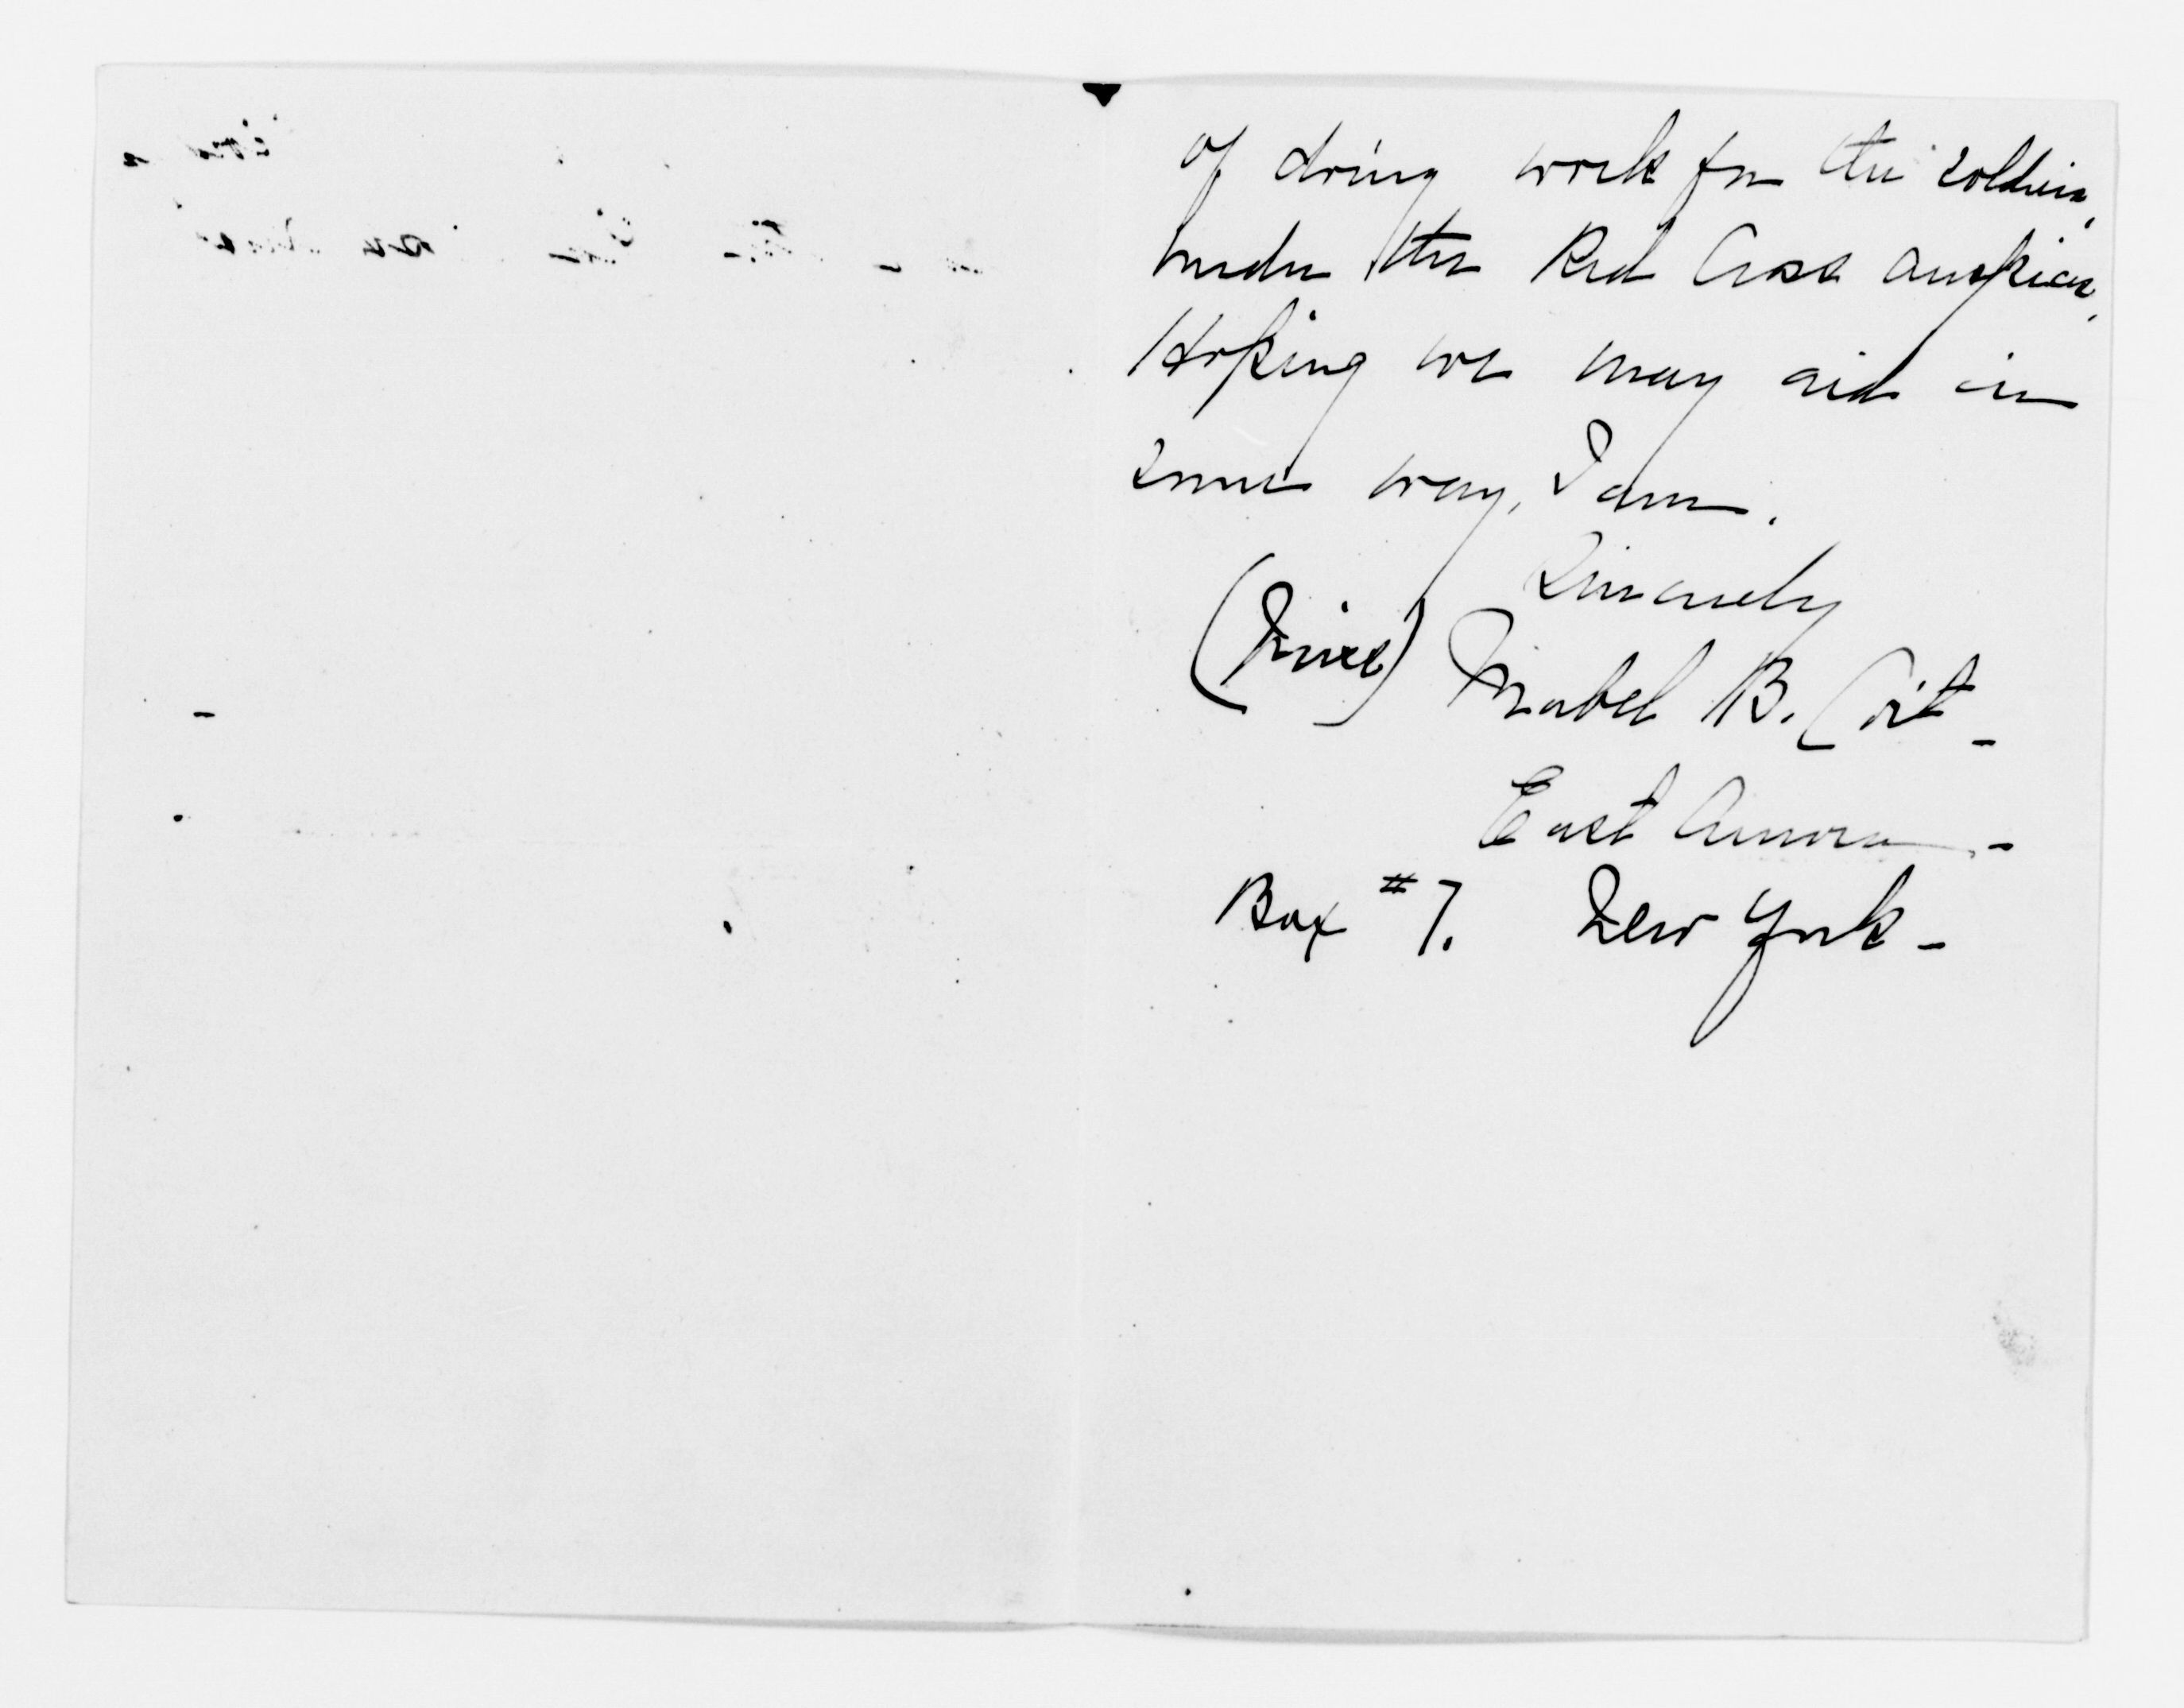 of doing work for the soldiers,
under the Red Cross auspices.
Hoping we may aid in
some way, I am.
Sincerely
(Miss) Mabel B. Coit -
East Aurora -
Box #7. New York -